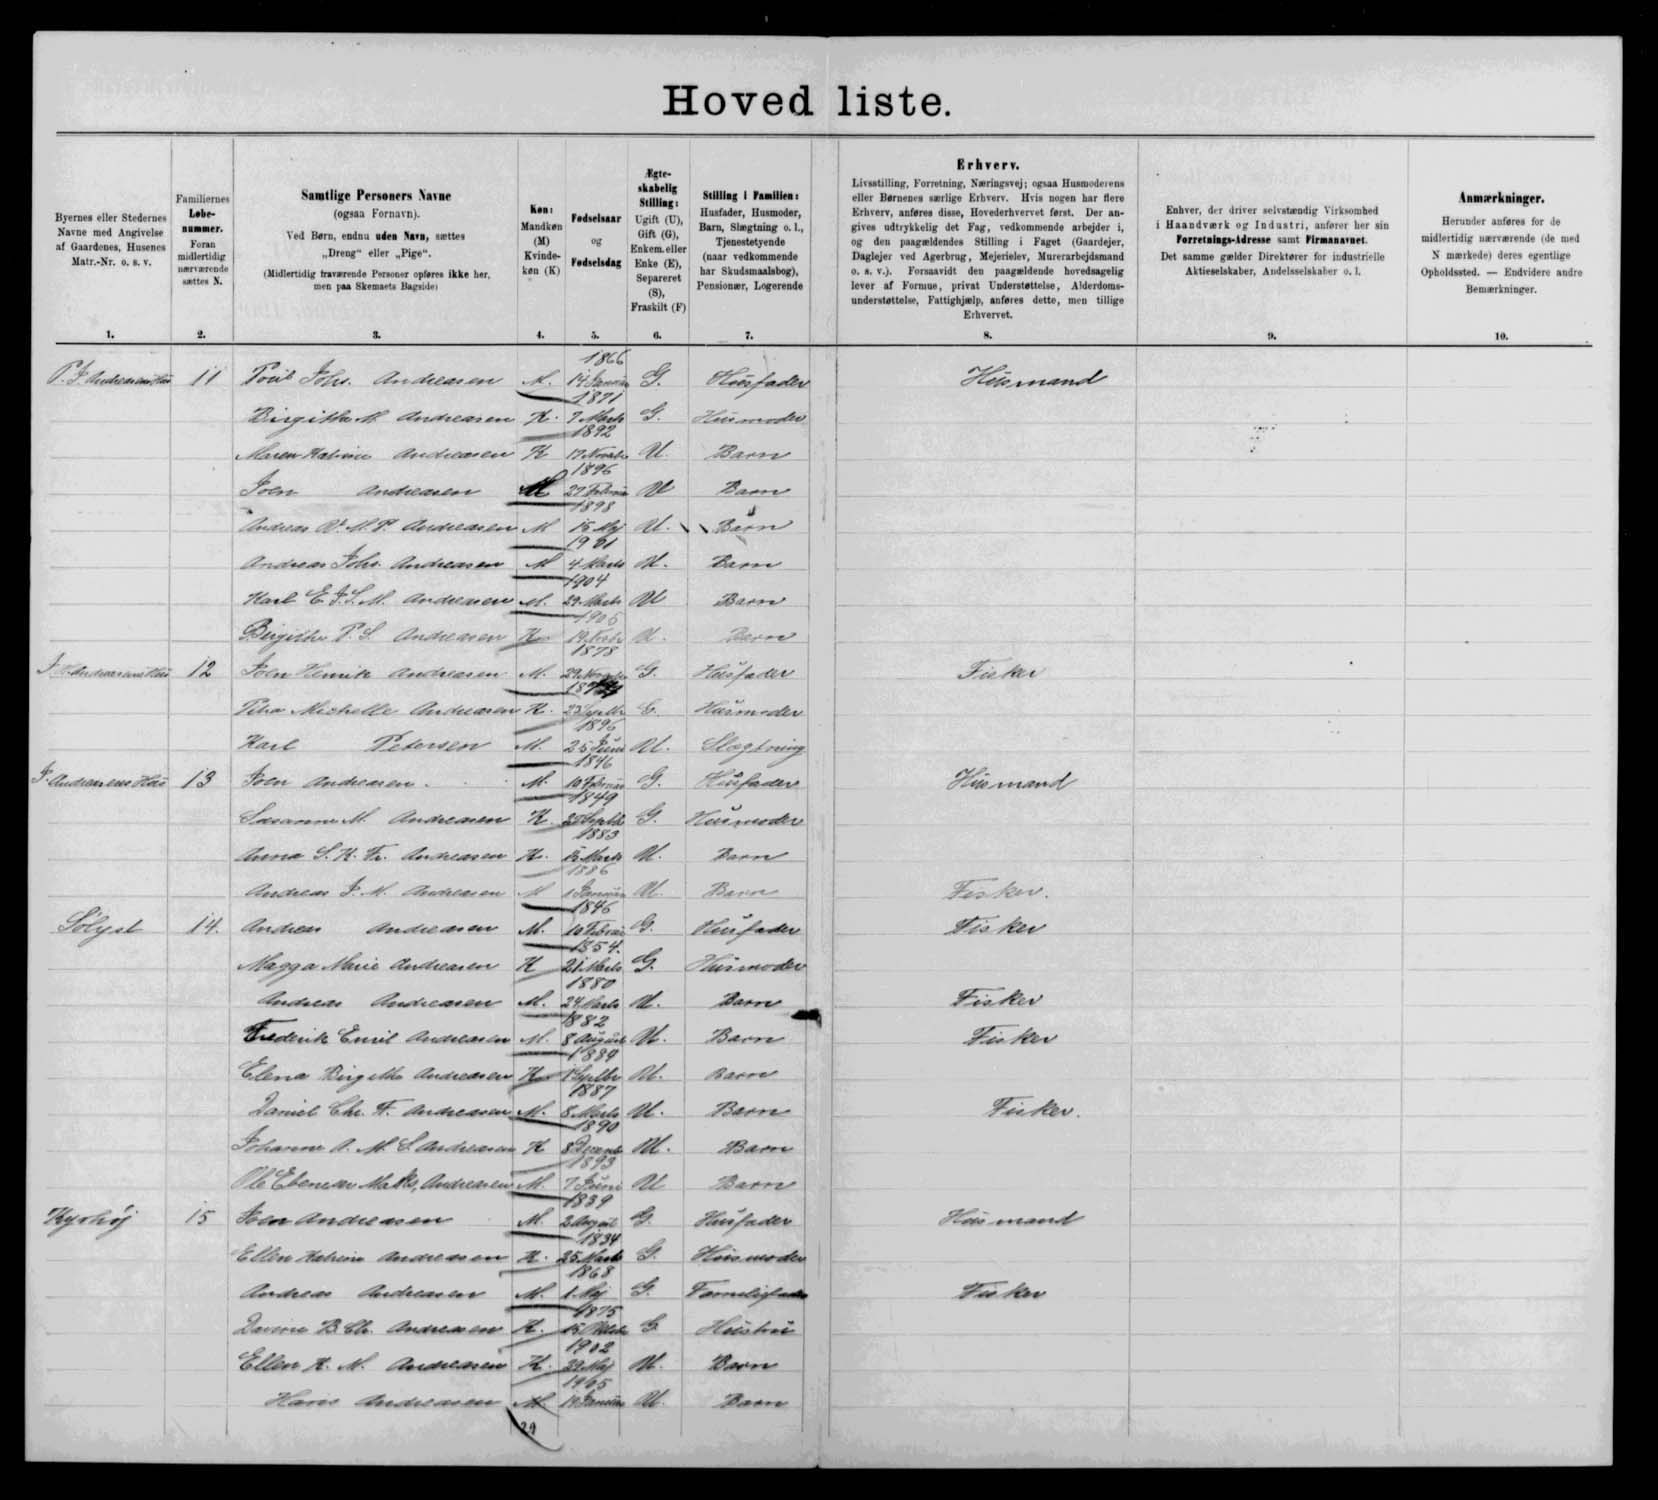 Hoved liste.
Byernes eller Stedernes
Navne med Angivelse
af Gaardenes, Husenes
Matr.-Nr. o. s. v.
1.
Familiernes
Løbe-
nummer.
Foran
midlertidig
nærværende
sættes N.
2.
Samtlige Personers Navne
(ogsaa Fornavn).
Ved Børn, endnu uden Navn, sættes
„Dreng“ eller „Pige“.
(Midlertidig fraværende Personer opføres ikke her,
men paa Skemaets Bagside)
3.
Køn:
Mandkøn
(M)
Kvinde-
køn (K)
4.
Fødselsaar
og
Fødselsdag
5.
Ægte-
skabelig
Stilling:
Ugift (U),
Gift (G),
Enkem. eller
Enke (E),
Separeret
(S),
Fraskilt (F)
6.
Stilling i Familien:
Husfader, Husmoder,
Barn, Slægtning o. l.,
Tjenestetyende
(naar vedkommende
har Skudsmaalsbog),
Pensionær, Logerende
7.
Erhverv.
Livsstilling, Forretning, Næringsvej; ogsaa Husmoderens
eller Børnenes særlige Erhverv. Hvis nogen har flere
Erhverv, anføres disse, Hovederhvervet først. Der an-
gives udtrykkelig det Fag, vedkommende arbejder i,
og den paagældendes Stilling i Faget (Gaardejer,
Daglejer ved Agerbrug, Mejerielev, Murerarbejdsmand
o. s. v.). Forsaavidt den paagældende hovedsagelig
lever af Formue, privat Understøttelse, Alderdoms-
understøttelse, Fattighjælp, anføres dette, men tillige
Erhvervet.
8.
Enhver, der driver selvstændig Virksomhed
i Haandværk og Industri, anfører her sin
Forretnings-Adresse samt Firmanavnet.
Det samme gælder Direktører for industrielle
Aktieselskaber, Andelsselskaber o. l.
9.
Anmærkninger.
Herunder anføres for de
midlertidig nærværende (de med
N mærkede) deres egentlige
Opholdssted. — Endvidere andre
Bemærkninger.
10.
P. J. Andreasens Hus 11 Poul Johs. Andreasen M. 1866 14 Januar G. Husfader Husmand
Birgithe M. Andreasen K. 1871 7 Marts G. Husmoder
Maren Katrine Andreasen K 1892 17 Novbr U. Barn
Joen Andreasen M 1896 27 Februar U Barn
Andreas M. P. Andreasen M 1898 15 Maj U. Barn
Andreas Johs. Andreasen M 1901 4 Marts U. Barn
Karl E. J. S. M. Andreasen M. 1904 29 Marts U Barn
Birgithe P. S. Andreasen K 1905 U. Barn
J. H. Andreasens Hus 12 Joen Henrik Andreasen M. 1878 29 Novembr G. Husfader Fisker
Michelle Andreasen K. 23 Septbr G. Husmoder
Karl Petersen M. 1896 25 Juni U. Slægtning
J. Andreasens Hus 13 Joen Andreasen M. 1846 10 Februar G. Husfader Husmand
Susanne M. Andreasen K. 1849 Septbr G. Husmoder
Anna S. K. Fr. Andreasen K. 1883 15 Marts U. Barn
Andreas J. M. Andreasen M 1886 1 Januar U. Barn Fisker.
Sølyst 14. Andreas Andreasen M. 1846 10 Februar G. Husfader Fisker
Magga Marie Andreasen K 1854. 21 Marts G. Husmoder
Andreas Andreasen M. 1880 24 Marts U. Barn Fisker
Frederik Emil Andreasen M. 1882 8 August U. Barn Fisker
Elena Birgithe Andreasen K 1884 1 Septbr U. Barn
Daniel Chr. F. Andreasen M. 1887 8 Marts U. Barn Fisker.
Johanne A. M. S. Andreasen K 1890 8 Decemb U. Barn
Ole Ebeneser Andreasen M. 1893 7 Juni U Barn
Kyrhøj 15 Joen Andreasen M. 1839 2 August G. Husfader Husmand
Ellen Katrine Andreasen K. 1834 25 Marts G. Husmoder
Andreas Andreasen M. 1868 1 Maj G. Familiefader Fisker
B. Chr. Andreasen K. 1875 15 Oktobr G Hustru
Ellen K. M. Andreasen K. 1902 29 Maj U. Barn
Hans Andreasen M 1905 14 Januar U. Barn
29